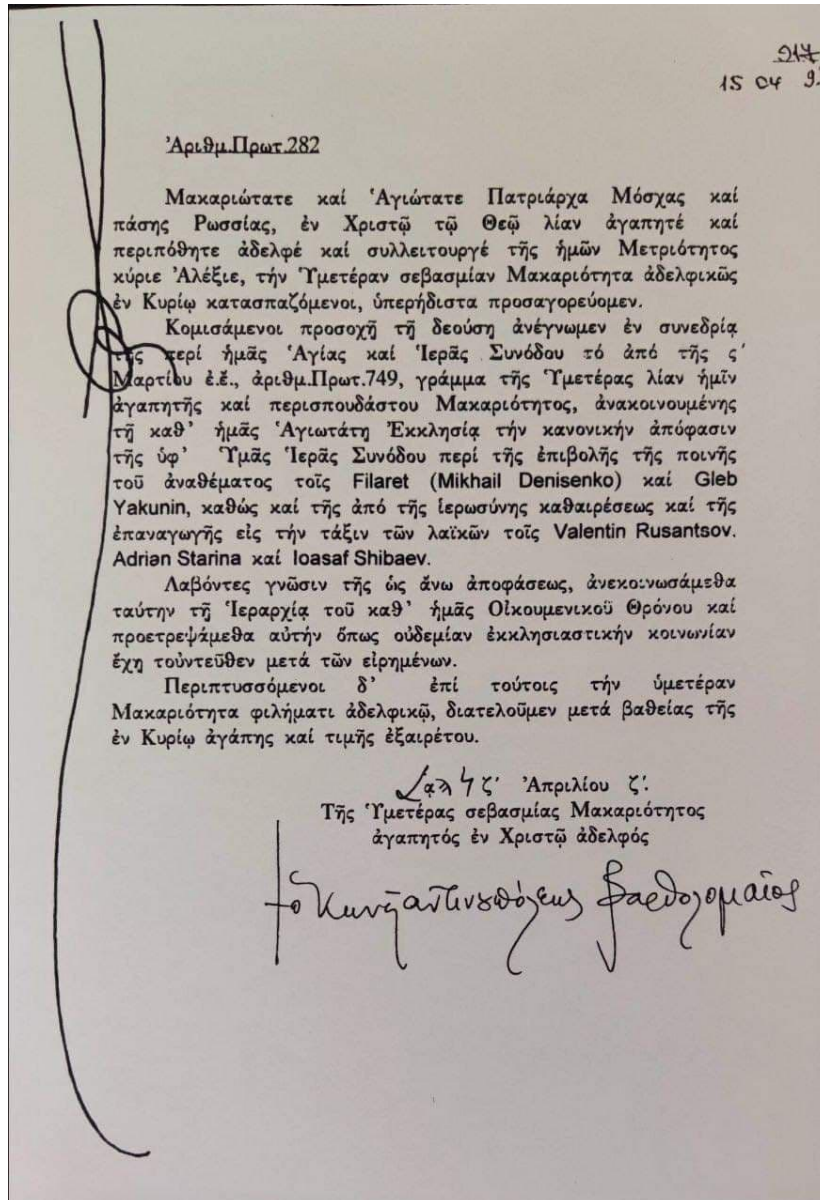 917
15 04 9
Ἀριθμ.Πρωτ.282
Μακαριώτατε καί Ἁγιώτατε Πατριάρχα Μόσχας καί
πάσης Ρωσσίας, ἐν Χριστῷ τῷ Θεῷ λίαν ἀγαπητέ καί
περιπόθητε ἀδελφέ καί συλλειτουργέ τῆς ἡμῶν Μετριότητος
κύριε Ἀλέξιε, τήν Ὑμετέραν σεβασμίαν Μακαριότητα ἀδελφικῶς
ἐν Κυρίῳ κατασπαζόμενοι, ὑπερήδιστα προσαγορεύομεν.
Κομισάμενοι προσοχῇ τῇ δεούσῃ ἀνέγνωμεν ἐν συνεδρίᾳ
τῆς περί ἡμᾶς Ἁγίας καί Ἱερᾶς Συνόδου τό ἀπό τῆς ς΄
Μαρτίου ἐ.ἔ., ἀριθμ.Πρωτ.749, γράμμα τῆς Ὑμετέρας λίαν ἡμῖν
ἀγαπητῆς καί περισπουδάστου Μακαριότητος, ἀνακοινουμένης
τῇ καθ' ἡμᾶς Ἁγιωτάτῃ Ἐκκλησίᾳ τήν κανονικήν ἀπόφασιν
τῆς ὑφ' Ὑμᾶς Ἱερᾶς Συνόδου περί τῆς ἐπιβολῆς τῆς ποινῆς
τοῦ ἀναθέματος τοῖς Filaret (Mikhail Denisenko) καί Gleb
Yakunin, καθώς καί τῆς ἀπό τῆς ἱερωσύνης καθαιρέσεως καί τῆς
ἐπαναγωγῆς εἰς τήν τάξιν τῶν λαϊκῶν τοῖς Valentin Rusantsov.
Adrian Starina καί Ioasaf Shibaev.
Λαβόντες γνῶσιν τῆς ὡς ἄνω ἀποφάσεως, ἀνεκοινωσάμεθα
ταύτην τῇ Ἱεραρχίᾳ τοῦ καθ' ἡμᾶς Οἰκουμενικοῦ Θρόνου καί
προετρεψάμεθα αὐτήν ὅπως οὐδεμίαν ἐκκλησιαστικήν κοινωνίαν
ἔχῃ τοὐντεῦθεν μετά τῶν εἰρημένων.
Περιπτυσσόμενοι δ' ἐπί τούτοις τήν ὑμετέραν
Μακαριότητα φιλήματι ἀδελφικῷ, διατελοῦμεν μετά βαθείας τῆς
ἐν Κυρίῳ ἀγάπης καί τιμῆς ἐξαιρέτου.
ζ΄ Ἀπριλίου ζ΄.
Τῆς Ὑμετέρας σεβασμίας Μακαριότητος
ἀγαπητός ἐν Χριστῷ ἀδελφός
Βαρθολομαῖος